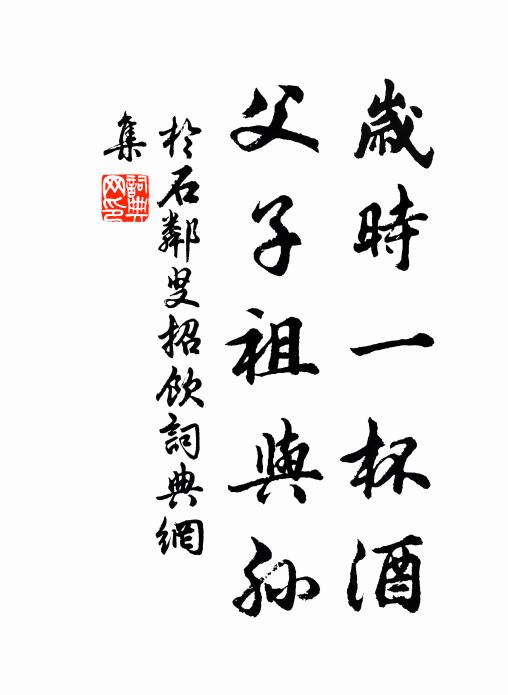 歲時一杯酒
父子祖與孫
於石鄰叟招飲詞典網
集
詞典
网印